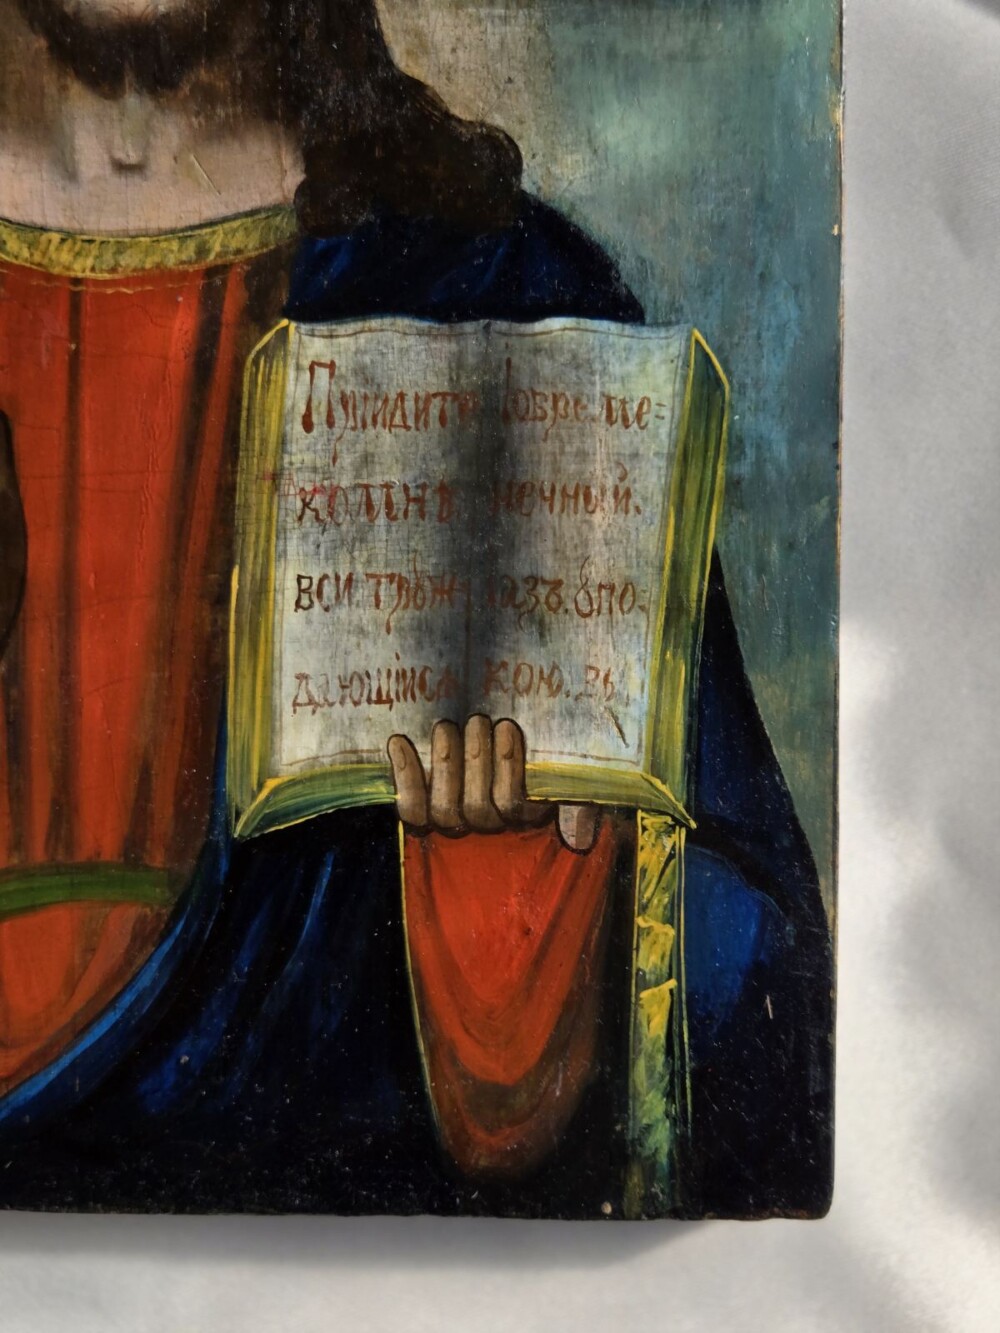 Пріидите
ко мнѣ
вси трꙋж
дающіися
іобреме=
нечный.
іазъ. ꙋпо=
кою. вы